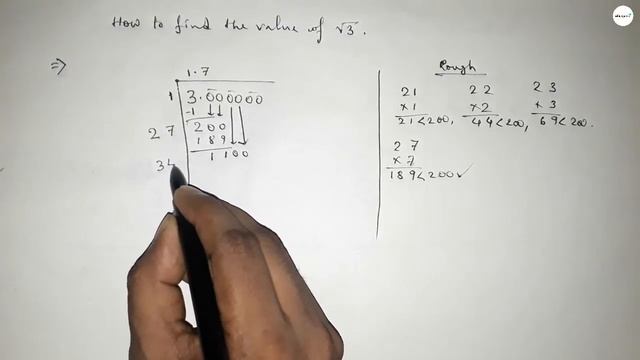 How to find the value of √3.
⇒
1.7
1 3.000000
-1
27 200
189
34 1100
Rough
21 22 23
×1 ×2 ×3
21<200, 44<200, 69<200.
27
×7
189<200✓